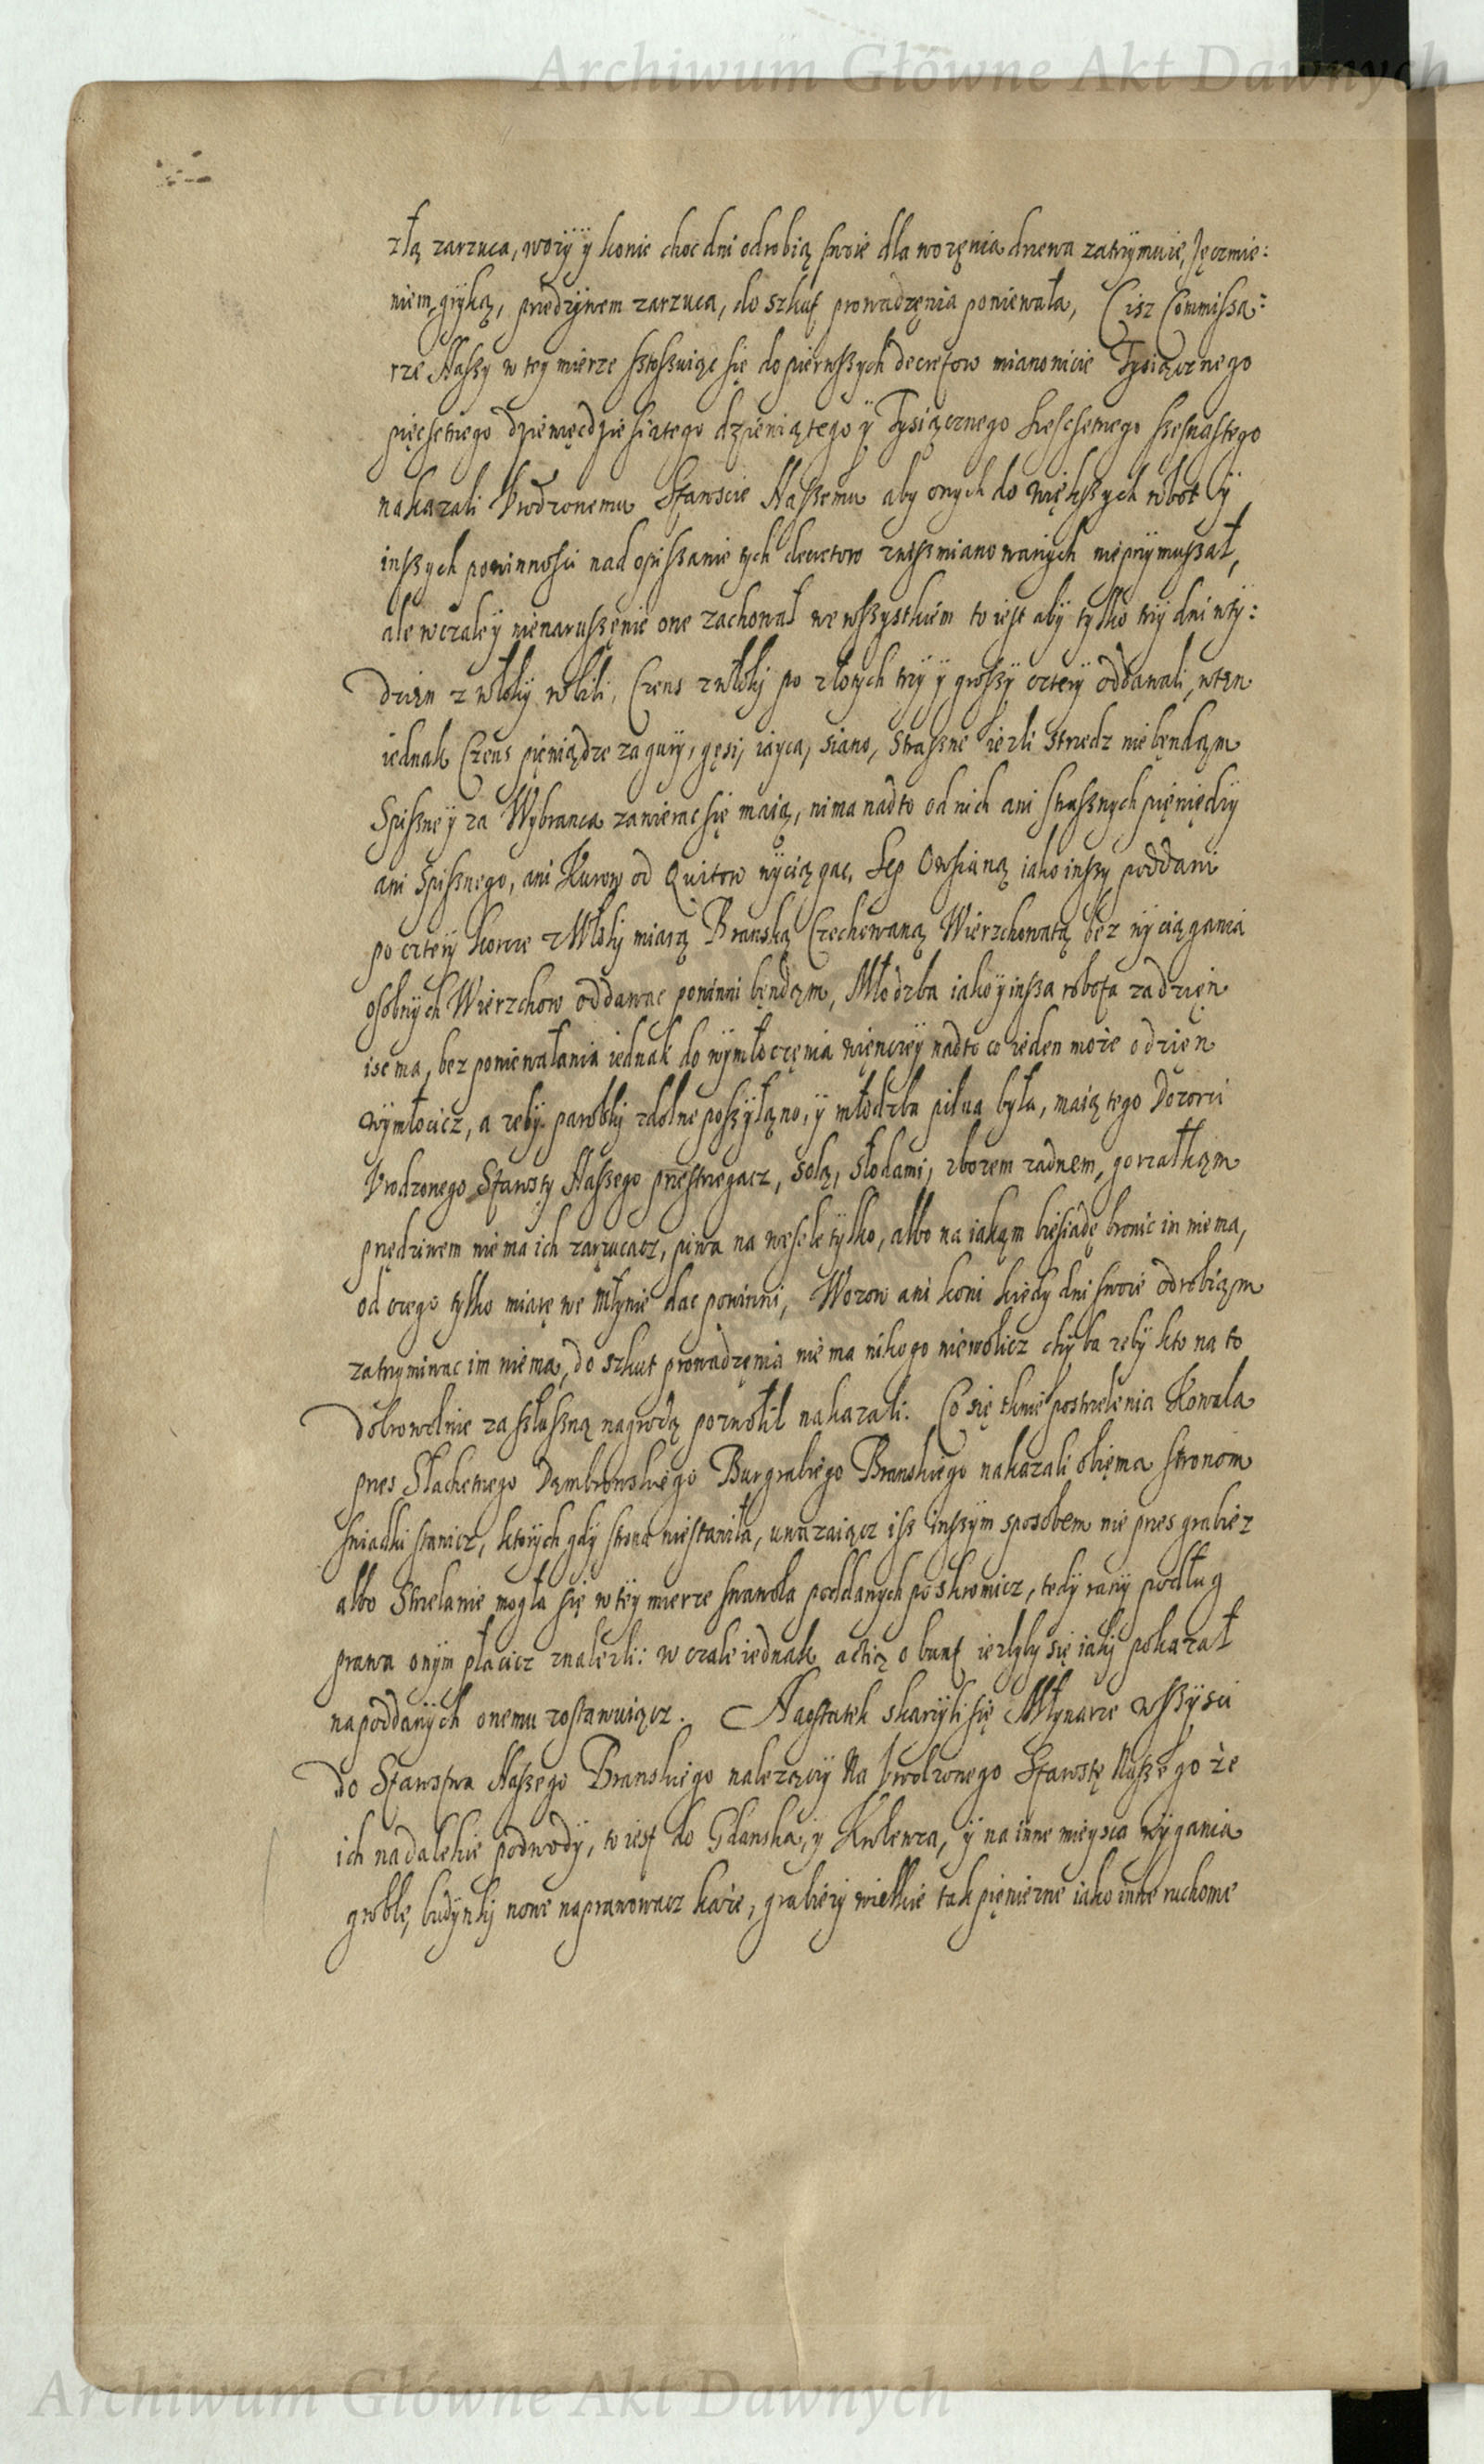 Archiwum Główne Akt Dawnych
złą zarzuca, wozÿ ÿ konie choc dni odrobią swoie dla wozęnia drzewa zatrzymuie, Jęczmie:
niem, grÿką, przedzÿwem zarzuca, do szkut prowadzęnia poniewala, Cisz Commissa:
rze Naszy w teÿ mierze stossuiąc się do pierwszych decretow mianowicie Tysiącznego
pięcsetnego dziewięcdziesiątego dziewiątego ÿ Tysiącznego szescsetnego szesnastego
nakazali Vrodzonemu Staroscie Naszemu aby onych do większych robot ÿ
inszych powinnosci nad opissanie tych decretow zwyszmianowanÿch nieprzymuszał,
ale wczale ÿ nienaruszęnie one zachował we wszystkiem to iest abÿ tylko trzÿ dni w tÿ:
dzięn z włoki robili, Czens z włoki po złotych trzÿ ÿ groszÿ czterÿ oddawali, w tęn
iednak Czens pięniądze za gurÿ, gęsi, iaÿca, siano, Strazne iezli strzedz nie będąm
Spiszne ÿ za Wybranca zawierac się maią, nima nadto od nich ani straznych pięniędzÿ
ani Spisznego, ani Kurow od Quitow wÿciągac, Sep Owsianą iako inszy poddani
po czterÿ korce z Włoki miarą Branską Czechowaną Wierzchowatą bez wÿciągania
osobnÿch Wierzchow oddawac powinni będąm, Młodzba iako ÿ insza robota za dzięn
isc ma, bez poniewalania iednak do wÿmłoczęnia więnceÿ nadto co ieden moze o dzięn
wÿmłocicz, a zebÿ parobki zdolne posÿłano, ÿ młodzba pilna była, maią tego Dozorci
Vrodzonego Starosty Naszego przestrzegacz, Solą, Słodami, zbozem zadnem, gorzałkąm
przędziwem nie ma ich zarzucacz, piwa na wesele tylko, albo na iakąm biesiadę bronic im niema,
od czego tylko miarę we młynie dac powinni, Wozow ani koni kiedy dni swoie odrobiąm
zatrzymiwac im niema, do szkut prowadzęnia nie ma nikogo niewolicz chÿba zebÿ kto na to
dobrowolnie za słuszną nagrodą pozwolił nakazali. Co się tknie postrzelenia Kowala
przes Slachetnego Dąmbrowskiego Burgrabiego Branskiego nakazali obięma stronom
swiadki stawicz, ktorych gdÿ strona niestawiła, uwazaiącz isz inszÿm sposobem nie przes grabiez
albo Strzelanie mogła się w tÿ mierze swawola poddanych poskromicz, tedÿ ranÿ podług
prawa onÿm płacicz znalezli: w czale iednak actią o bunt iezlÿby się iaki pokazał
na poddanÿch onemu zostawuiącz. Naostatek skarzÿli się Młynarze wszÿsci
do Starostwa Naszego Branskiego nalezączÿ Na Vrodzonego Starostę Naszego ze
ich na dalekie podwodÿ, to iest do Gdanska, ÿ Krolewca, ÿ na inne mieysca wÿgania
groblę, budÿnki nowe naprawowacz kaze, grabiezÿ wielkie tak pięniezne iako inne ruchome
Archiwum Główne Akt Dawnych